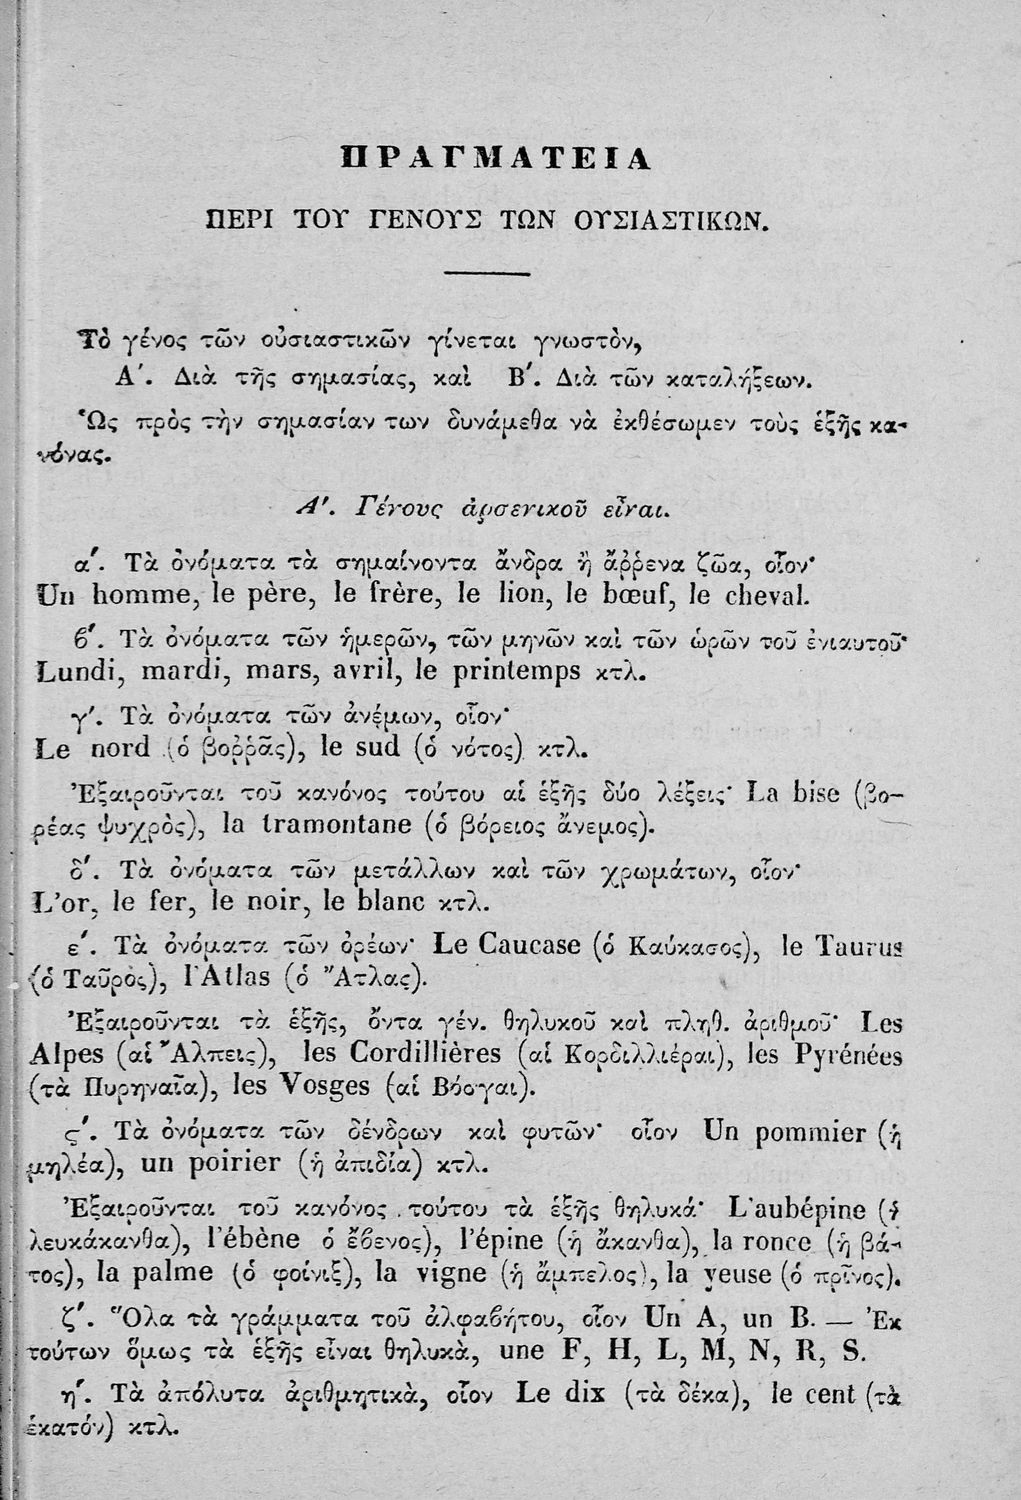 ΠΡΑΓΜΑΤΕΙΑ
ΠΕΡΙ ΤΟΥ ΓΕΝΟΥΣ ΤΩΝ ΟΥΣΙΑΣΤΙΚΩΝ.
Τὸ γένος τῶν οὐσιαστικῶν γίνεται γνωστὸν,
Α΄. Διὰ τῆς σημασίας, καὶ Β΄. Διὰ τῶν καταλήξεων.
Ὡς πρὸς τὴν σημασίαν των δυνάμεθα νὰ ἐκθέσωμεν τοὺς ἑξῆς κα-
νόνας.
Α΄. Γένους ἀρσενικοῦ εἶναι.
α΄. Τὰ ὀνόματα τὰ σημαίνοντα ἄνδρα ἢ ἄῤῥενα ζῶα, οἷον·
Un homme, le père, le frère, le lion, le bœuf, le cheval.
ϐ΄. Τὰ ὀνόματα τῶν ἡμερῶν, τῶν μηνῶν καὶ τῶν ὡρῶν τοῦ ἐνιαυτοῦ·
Lundi, mardi, mars, avril, le printemps κτλ.
γ΄. Τὰ ὀνόματα τῶν ἀνέμων, οἷον·
Le nord (ὁ βοῤῥᾶς), le sud (ὁ νότος) κτλ.
Ἐξαιροῦνται τοῦ κανόνος τούτου αἱ ἑξῆς δύο λέξεις· La bise (βο-
ρέας ψυχρὸς), la tramontane (ὁ βόρειος ἄνεμος).
δ΄. Τὰ ὀνόματα τῶν μετάλλων καὶ τῶν χρωμάτων, οἷον·
L'or, le fer, le noir, le blanc κτλ.
ε΄. Τὰ ὀνόματα τῶν ὀρέων· Le Caucase (ὁ Καύκασος), le Taurus
(ὁ Ταῦρος), l'Atlas (ὁ Ἄτλας).
Ἐξαιροῦνται τὰ ἑξῆς, ὄντα γέν. θηλυκοῦ καὶ πληθ. ἀριθμοῦ· Les
Alpes (αἱ Ἄλπεις), les Cordillières (αἱ Κορδιλλιέραι), les Pyrénées
(τὰ Πυρηναῖα), les Vosges (αἱ Βόσγαι).
ς΄. Τὰ ὀνόματα τῶν δένδρων καὶ φυτῶν· οἷον Un pommier (ἡ
μηλέα), un poirier (ἡ ἀπιδία) κτλ.
Ἐξαιροῦνται τοῦ κανόνος τούτου τὰ ἑξῆς θηλυκά· L'aubépine (ἡ
λευκάκανθα), l'ébène ὁ ἔϐενος), l'épine (ἡ ἄκανθα), la ronce (ἡ βά-
τος), la palme (ὁ φοίνιξ), la vigne (ἡ ἄμπελος), la yeuse (ὁ πρῖνος).
ζ΄. Ὅλα τὰ γράμματα τοῦ ἀλφαϐήτου, οἷον Un A, un B. — Ἐκ
τούτων ὅμως τὰ ἑξῆς εἶναι θηλυκὰ, une F, H, L, M, N, R, S.
η΄. Τὰ ἀπόλυτα ἀριθμητικὰ, οἷον Le dix (τὰ δέκα), le cent (τὰ
ἑκατόν) κτλ.